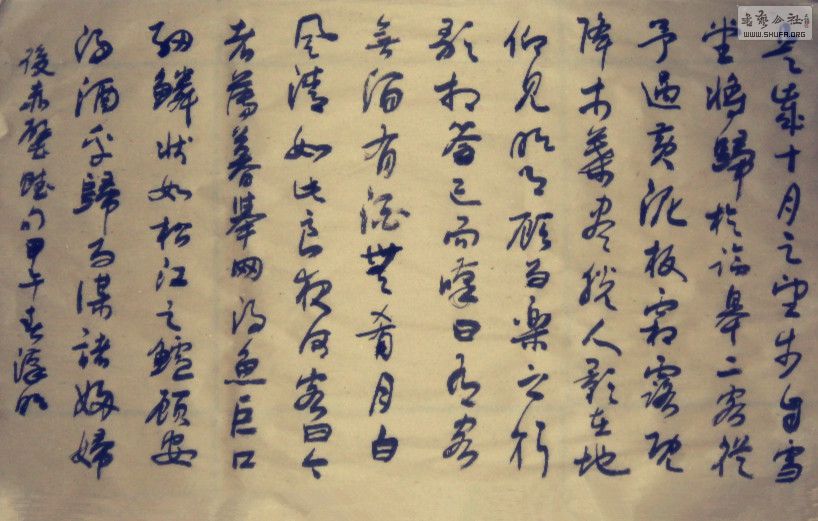 書藝公社
WWW.SHUFA.ORG
是歲十月之望步自雪
堂將歸於臨皋二客從
予過黃泥板霜露既
降木葉盡脫人影在地
仰見明月顧而樂之行
歌相答已而嘆曰有客
無酒有酒無肴月白
風清如此良夜何客曰今
者薄暮舉网得魚巨口
細鱗狀如松江之鱸顧安
得酒乎歸而謀諸婦婦
後赤壁賦句甲午春